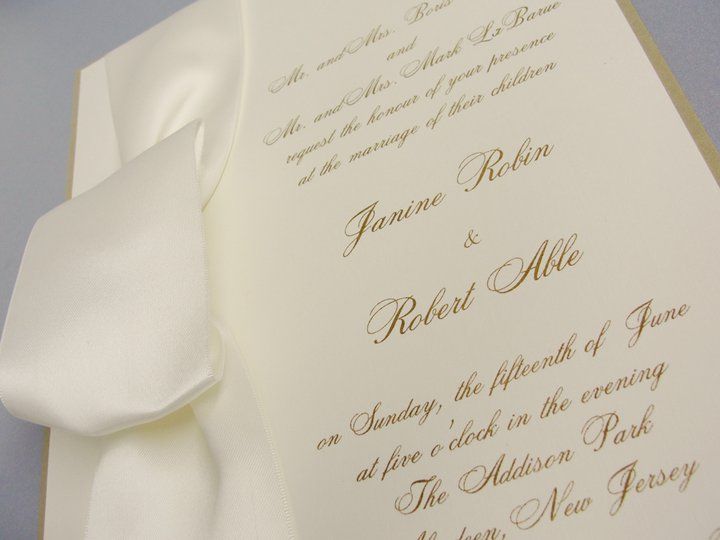 Mr. and Mrs. Boris
and
Mr. and Mrs. Mark LaBarue
request the honour of your presence
at the marriage of their children
Janine Robin
&
Robert Able
on Sunday, the fifteenth of June
at five o'clock in the evening
The Addison Park
New Jersey